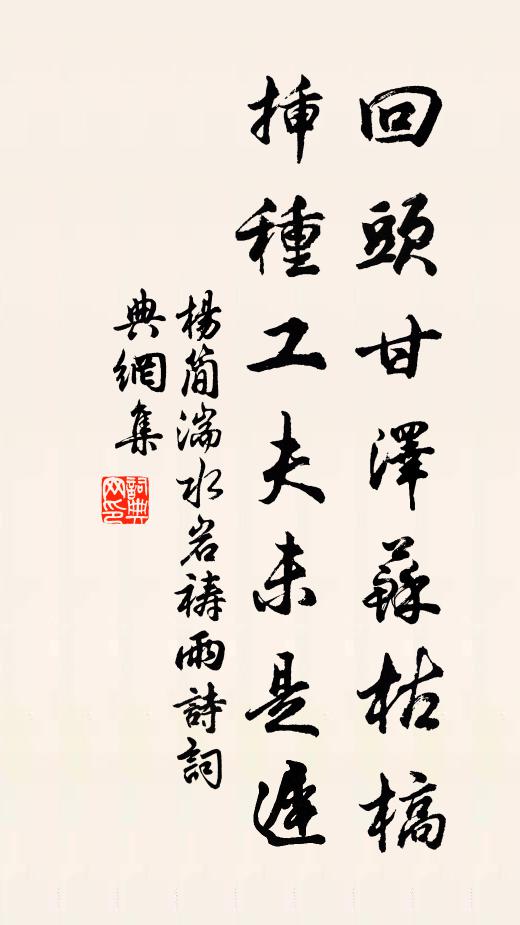 回頭甘澤蘇枯槁
挿種工夫未是遲
楊簡湍水岩禱雨詩詞
典網集
詞典网印